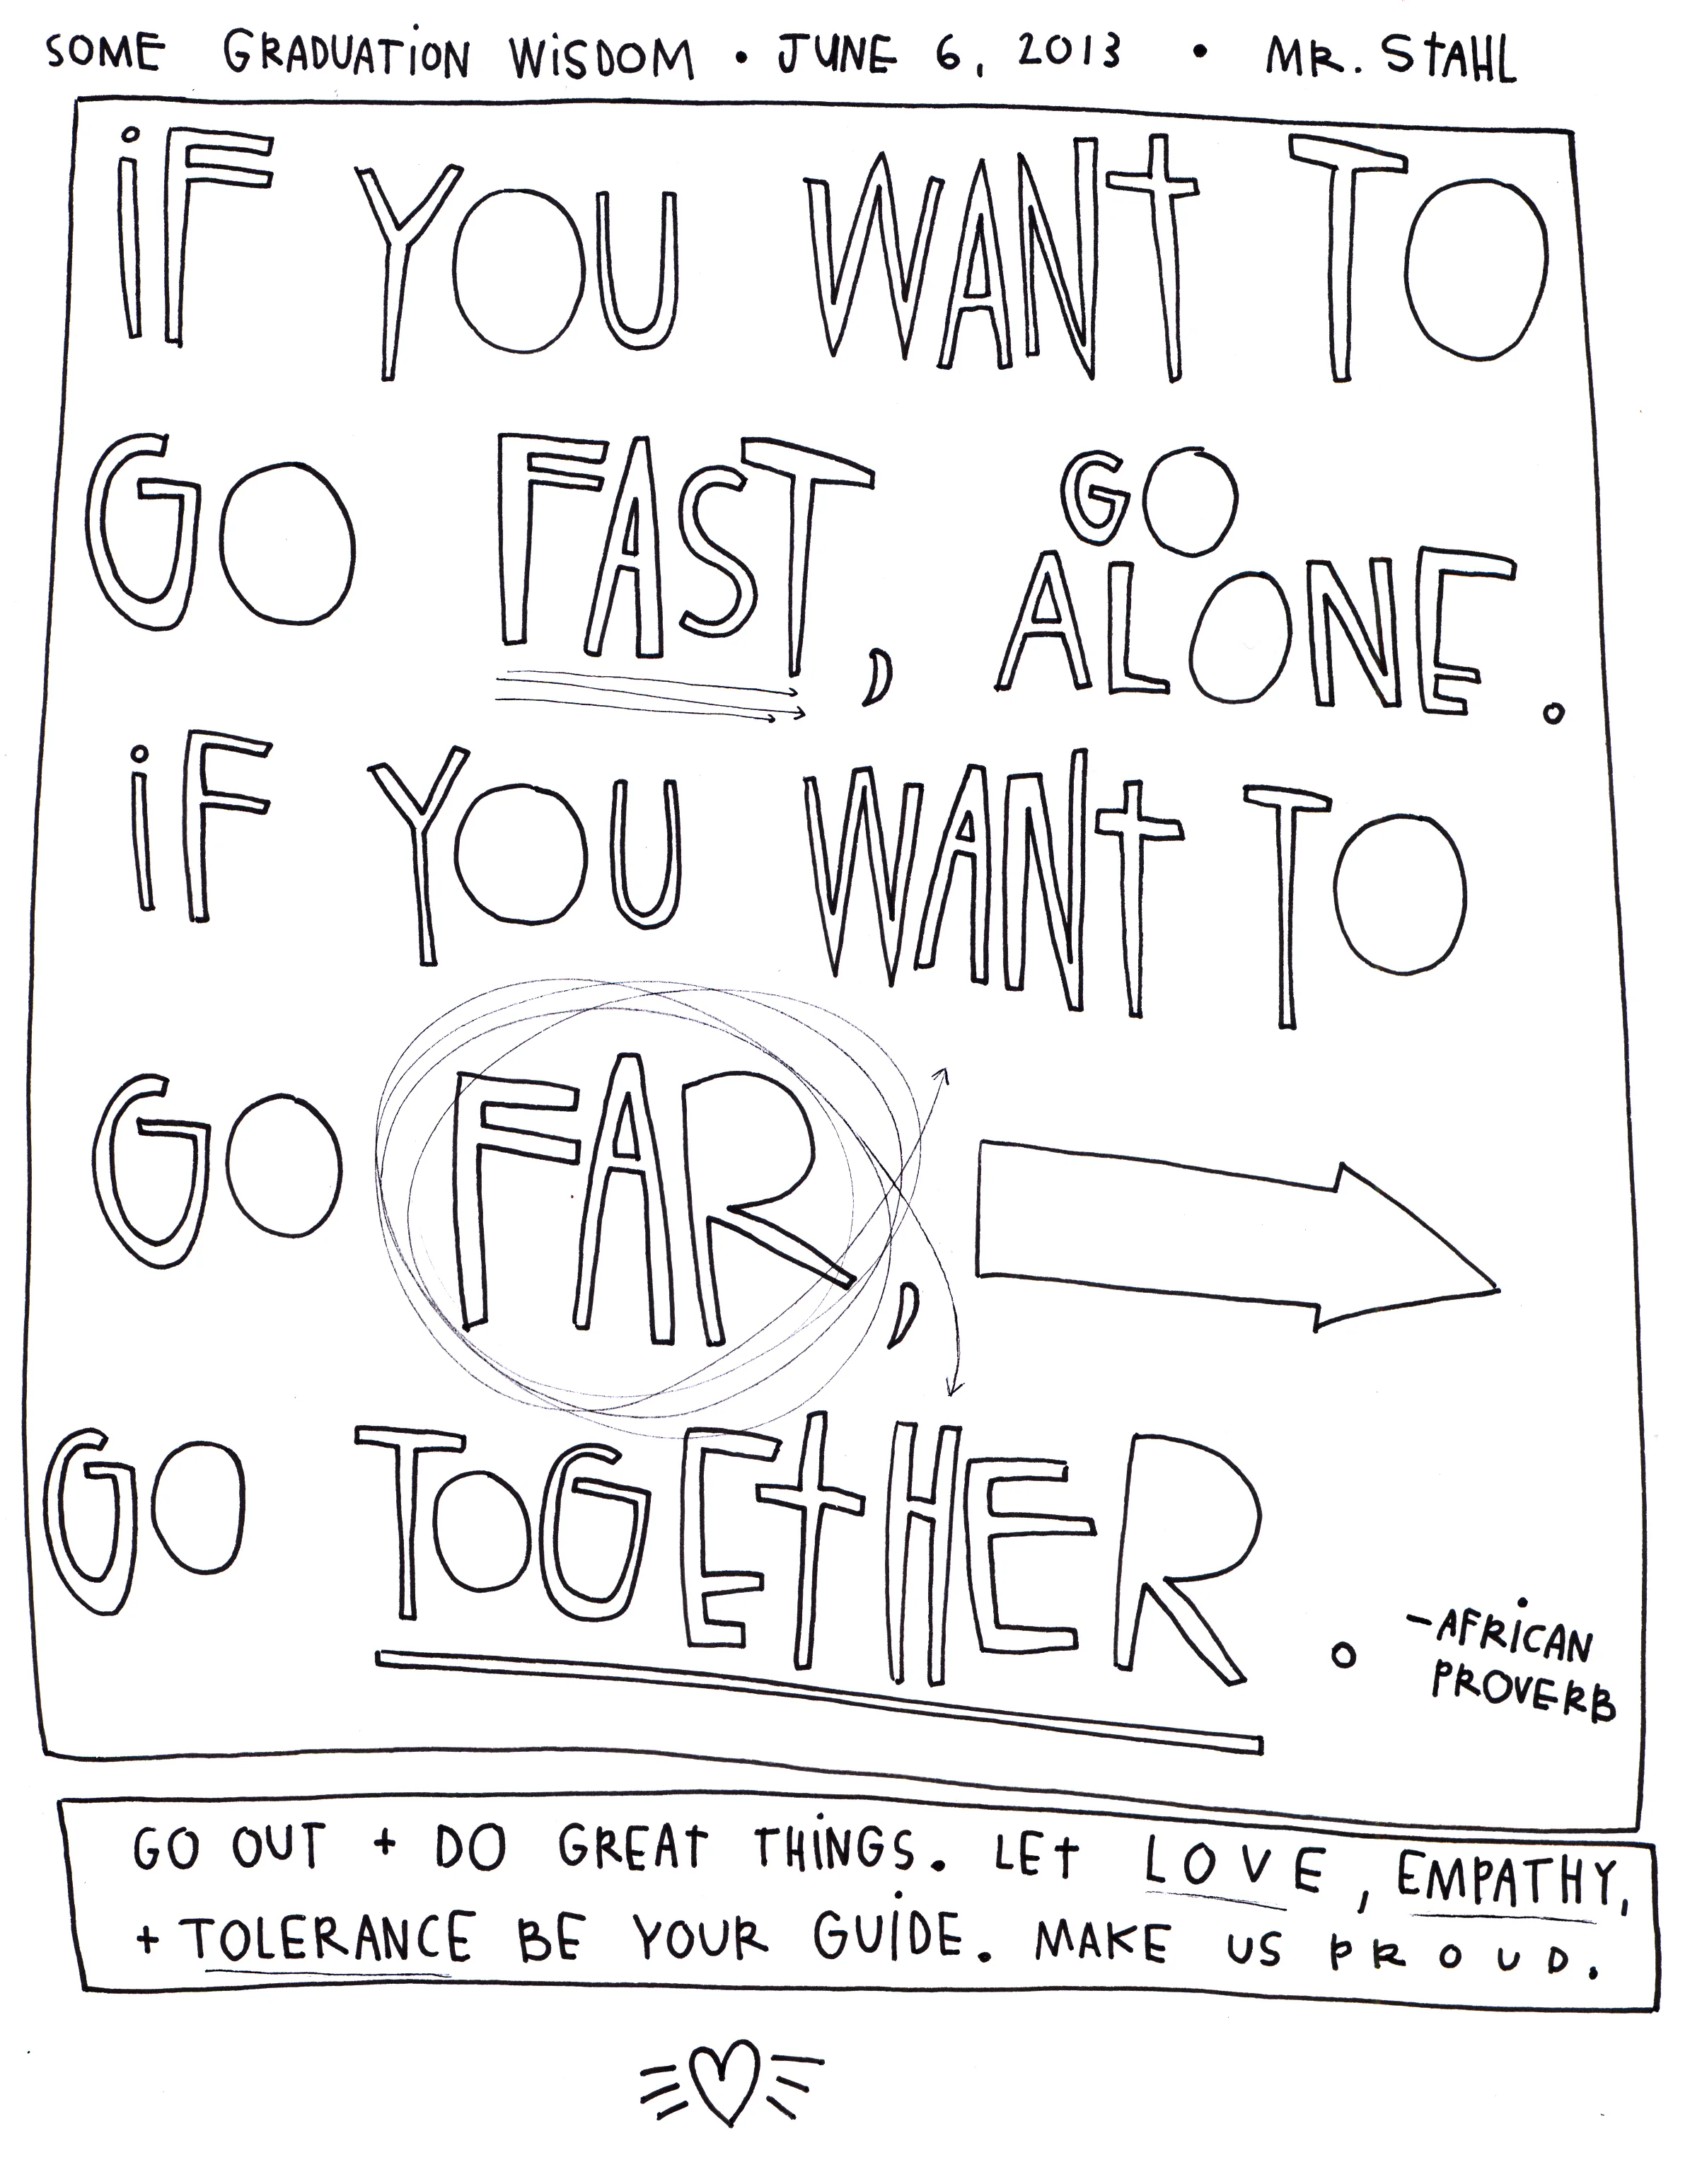 SOME GRADUATION WISDOM • JUNE 6, 2013 • MR. STAHL
iF YOU WANT TO
GO FAST, GO ALONE.
iF YOU WANT TO
GO FAR,
GO TOGETHER.
-AFRiCAN
PROVERB
GO OUT + DO GREAT THiNGS. LET LOVE, EMPATHY,
+ TOLERANCE BE YOUR GUiDE. MAKE US PROUD.